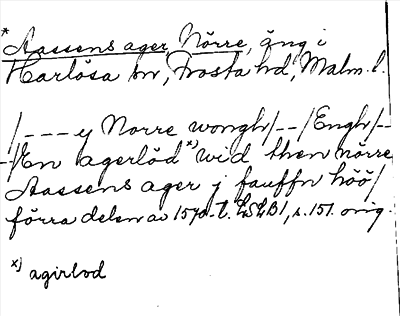 * Aassens ager, Nörre, äng i
Harlösa sn, Frosta hd, Malm. l.
/--- y Norre wongh/--/Engh/--
-/En agerlöd x) wid then nörre
Aassens ager j fauffn höö/
förra delen av 1570-t. LSLB1, s. 151. orig.
x) agirlod